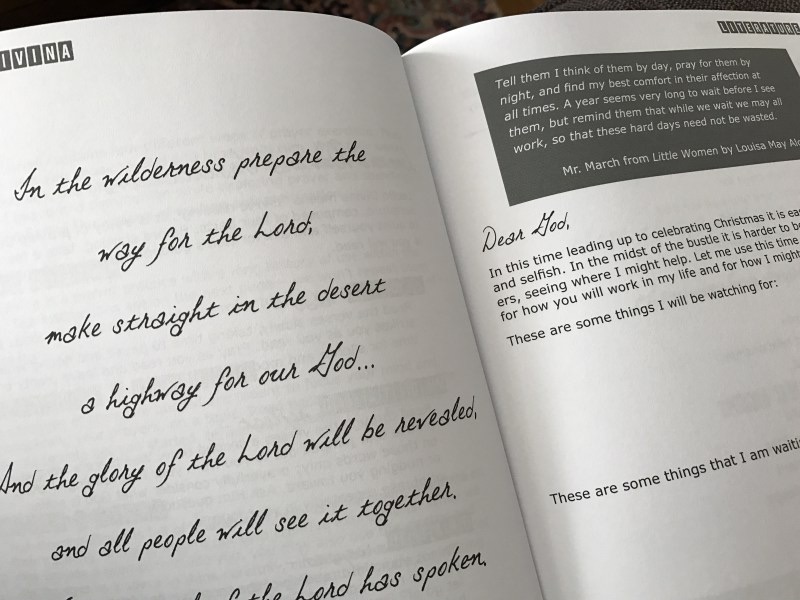 IVINA
In the wilderness prepare the
way for the Lord;
make straight in the desert
a highway for our God...
And the glory of the Lord will be revealed,
and all people will see it together.
of the Lord has spoken.
LITERATURE
Tell them I think of them by day, pray for them by
night, and find my best comfort in their affection at
all times. A year seems very long to wait before I see
them, but remind them that while we wait we may all
work, so that these hard days need not be wasted.
Mr. March from Little Women by Louisa May Alc
Dear God,
In this time leading up to celebrating Christmas it is eas
and selfish. In the midst of the bustle it is harder to be
ers, seeing where I might help. Let me use this time
for how you will work in my life and for how I might
These are some things I will be watching for:
These are some things that I am waiti